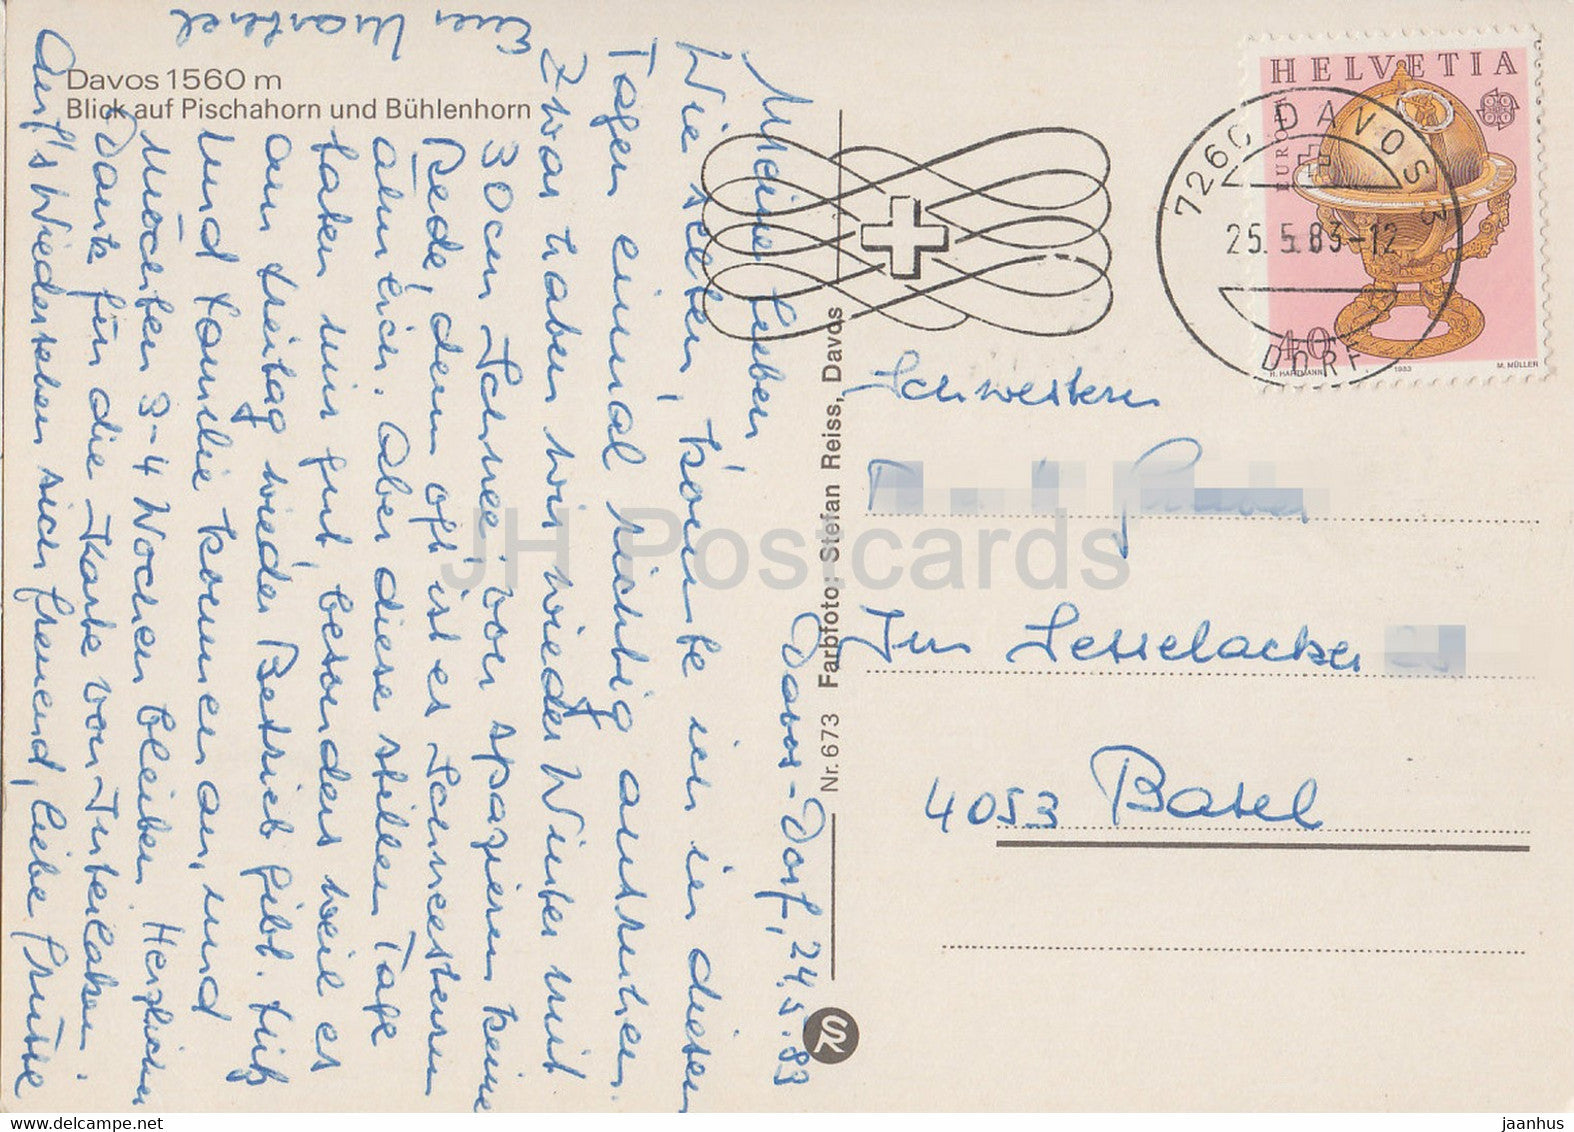 Davos 1560 m
Blick auf Pischahorn und Bühlenhorn
Nr. 673 Farbfoto: Stefan Reiss, Davos
SR
HELVETIA
EUROPA
CEPT
40
H. HARTMANN 1983 M. MÜLLER
7260 DAVOS 3
25.5.83-12
DORF
Davos-Dorf, 24.5.83
Meine lieben
Wie selten, konnte ich in diesen
Tagen einmal richtig ausruhen.
Zwar haben wir wieder Winter mit
30cm Schnee, von spazieren keine
Rede, denn oft ist es Schneesturm
ähnlich. Aber diese stillen Tage
taten mir gut, besonders weil es
am Freitag wieder Betrieb gibt.
und Familie kommen an, und
möchten 3-4 Wochen bleiben. Herzlichen
Dank für die Karte von Interlaken.
Auf's Wiedersehen sich freuend, liebe Grüsse
Euer
Schwestern
Im Sesselacker
4053 Basel
JH Postcards
jaanhus